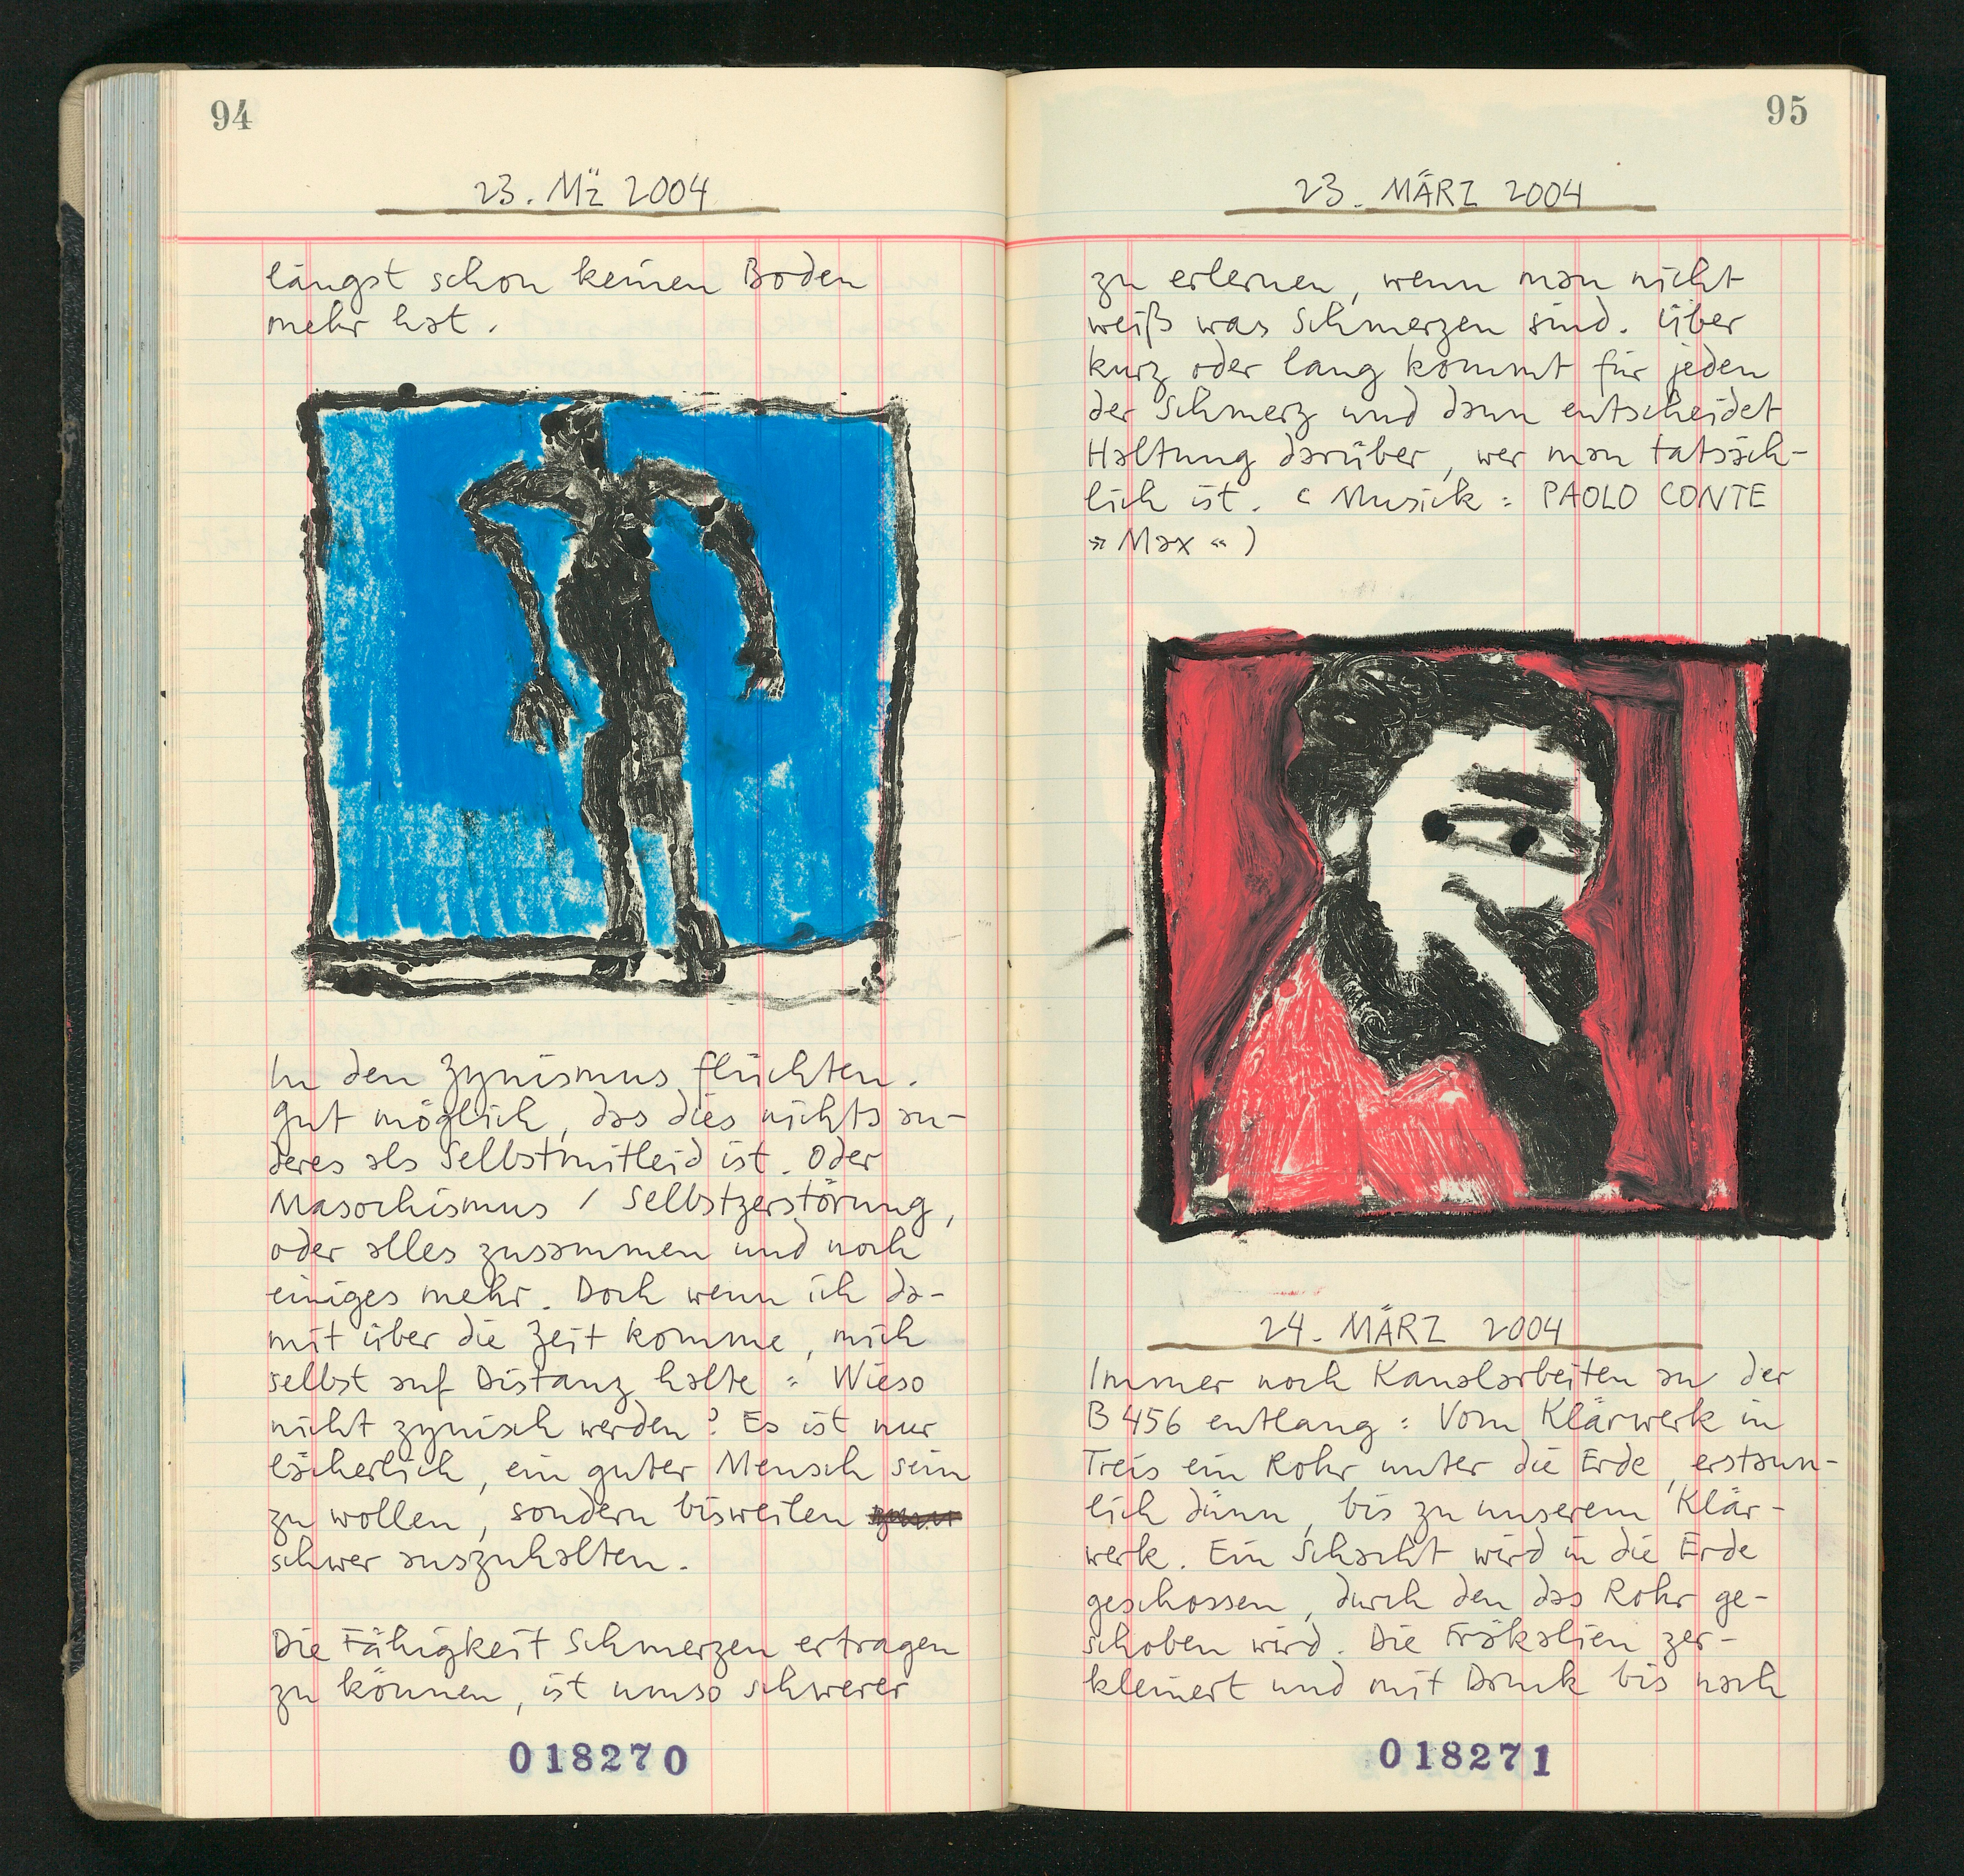 94
23. Mz 2004
längst schon keinen Boden
mehr hat.
In den Zynismus flüchten.
Gut möglich, das dies nichts an-
deres als Selbstmitleid ist. Oder
Masochismus / Selbstzerstörung,
oder alles zusammen und noch
einiges mehr. Doch wenn ich da-
mit über die Zeit komme, mich
selbst auf Distanz halte: Wieso
nicht zynisch werden? Es ist nur
lächerlich, ein guter Mensch sein
zu wollen, sondern bisweilen
schwer auszuhalten.
Die Fähigkeit Schmerzen ertragen
zu können, ist umso schwerer
018270
95
23. MÄRZ 2004
zu erlernen, wenn man nicht
weiß was Schmerzen sind. Über
kurz oder lang kommt für jeden
der Schmerz und dann entscheidet
Haltung darüber, wer man tatsäch-
lich ist. (Musick: PAOLO CONTE
»Max«)
24. MÄRZ 2004
Immer noch Kanalarbeiten an der
B 456 entlang: Vom Klärwerk in
Treis ein Rohr unter die Erde, erstaun-
lich dünn, bis zu unserem Klär-
werk. Ein Schacht wird in die Erde
geschossen, durch den das Rohr ge-
schoben wird. Die Fräkalien zer-
kleinert und mit Druck bis nach
018271